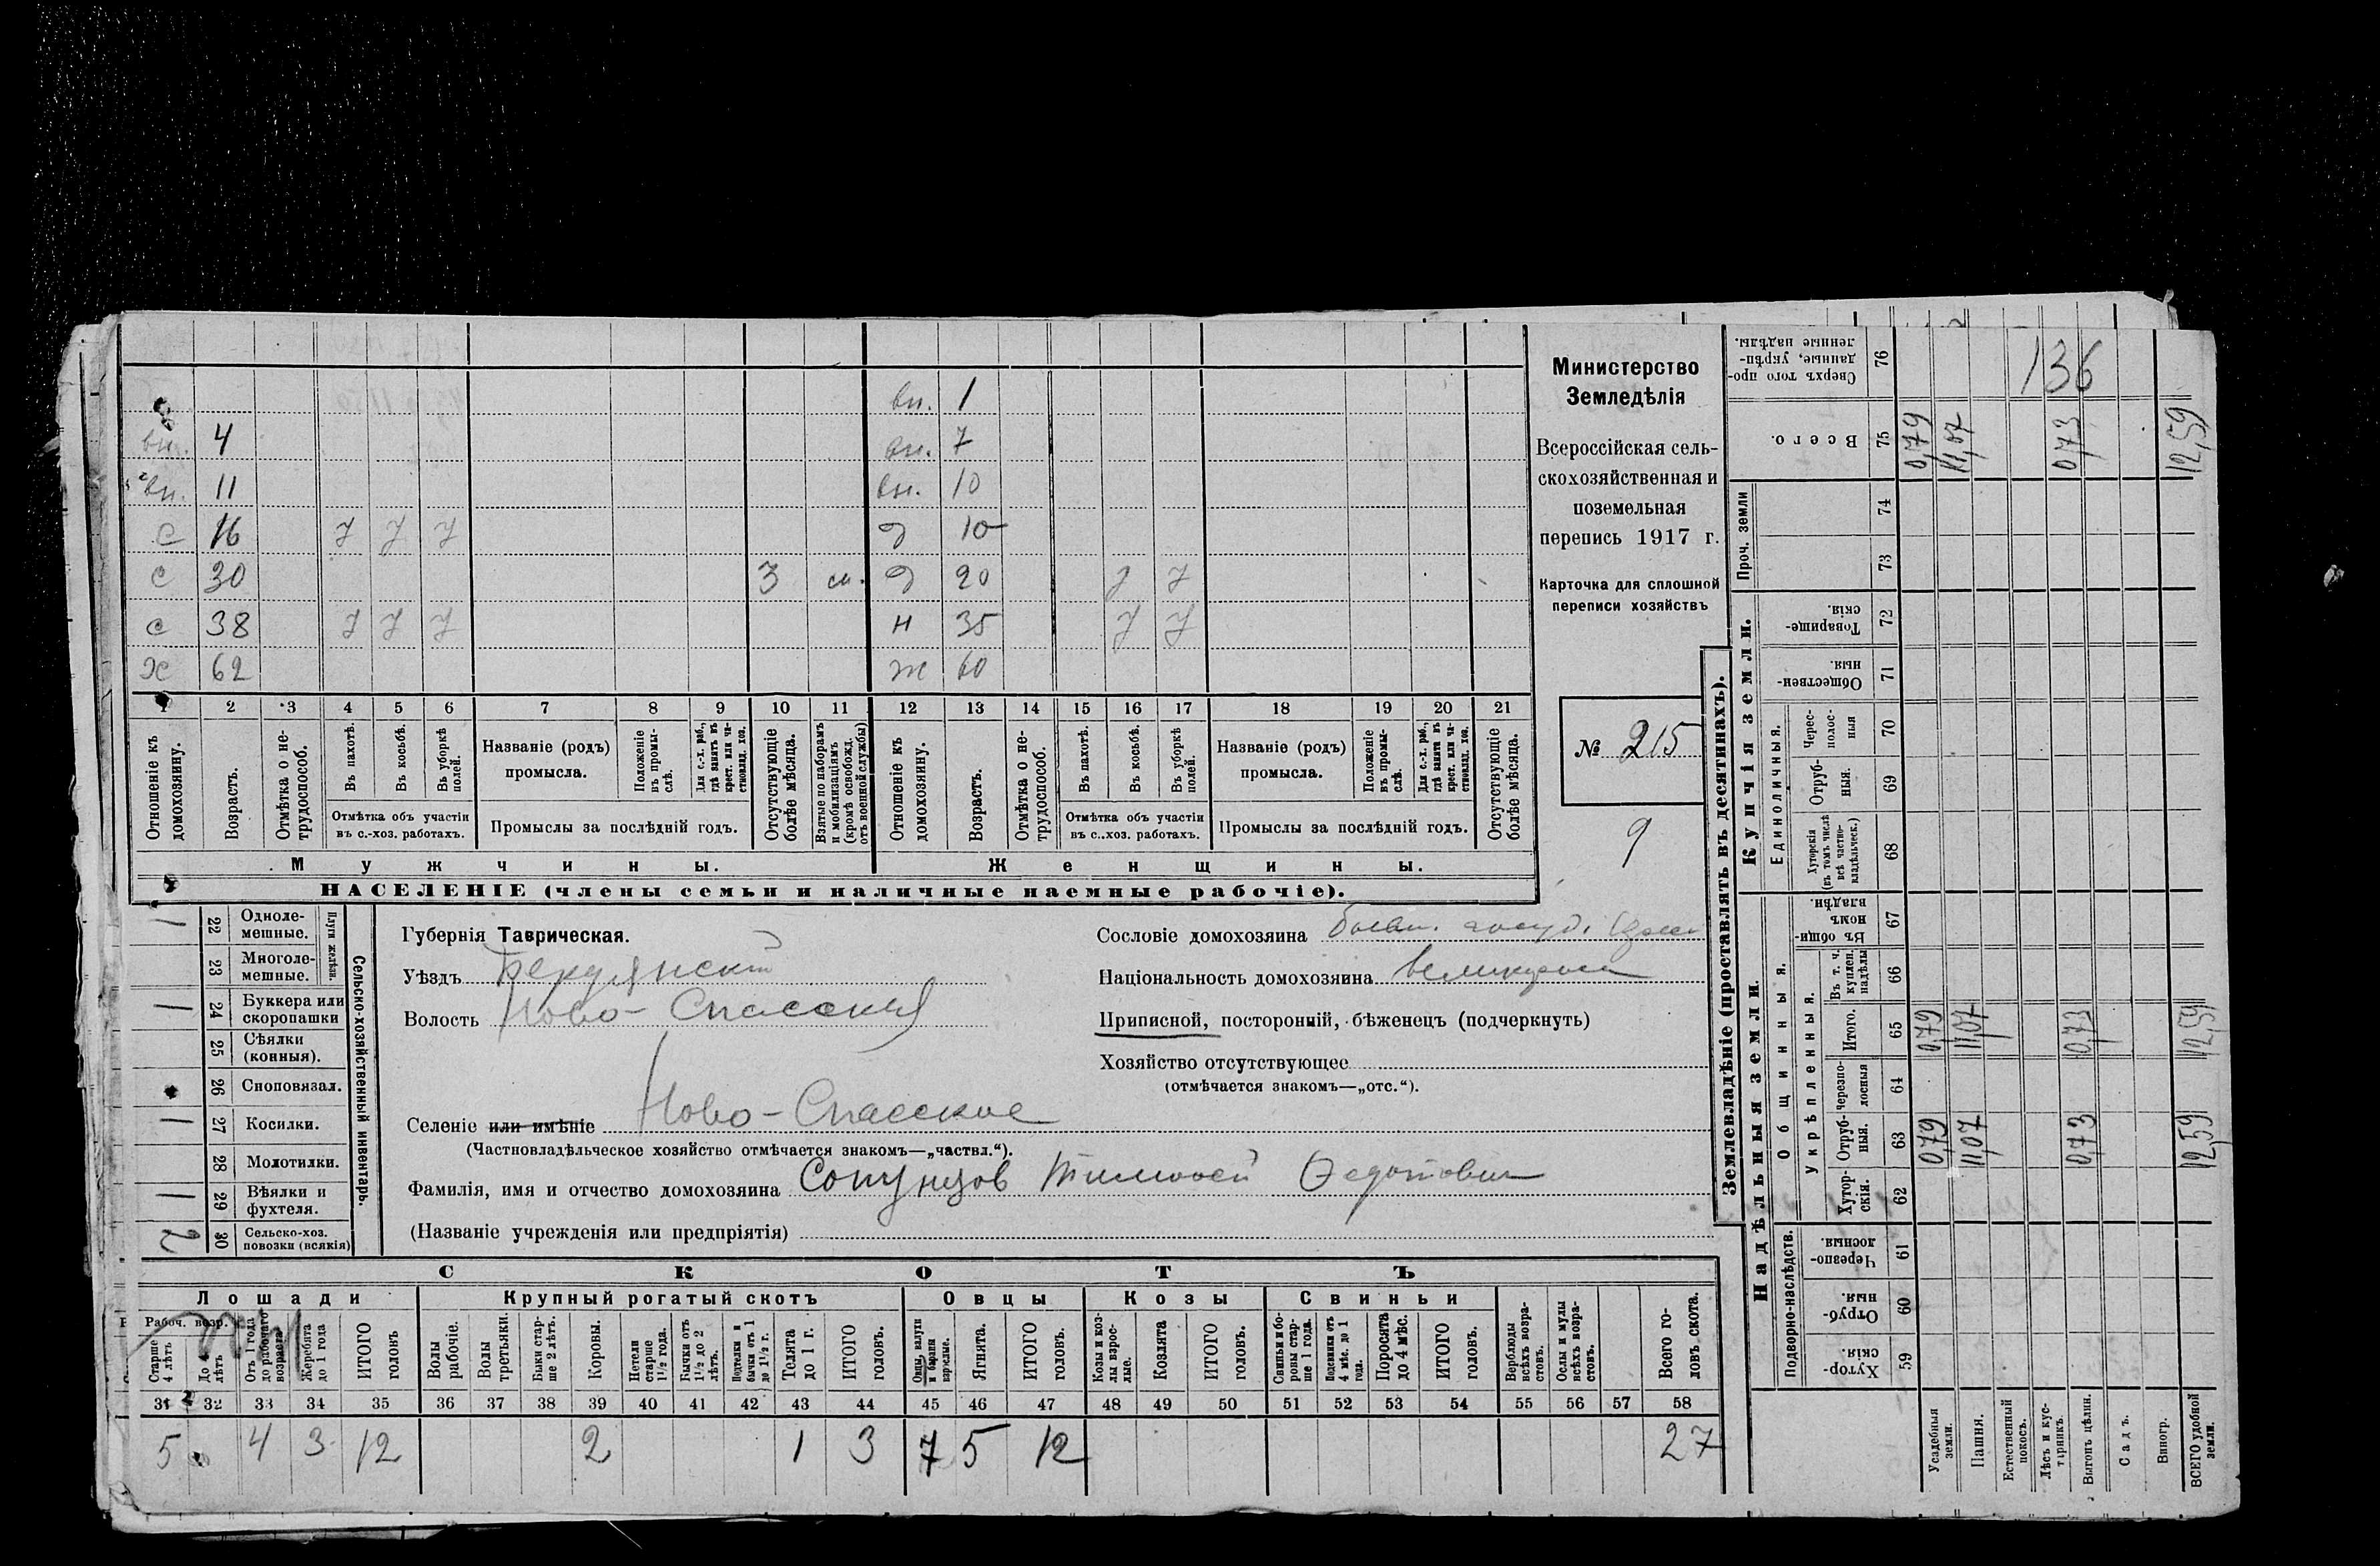 вн. 1
вн. 4 вн. 7
вн. 11 вн. 10
с 16 д 10
с 30 3 м. д 20
с 38 н 35
х 62 ж 60
1 2 3 4 5 6 7 8 9 10 11 12 13 14 15 16 17 18 19 20 21
Отношеніе къ домохозяину.
Возрастъ.
Отмѣтка о не-трудоспособ.
Въ пахотѣ.
Въ косьбѣ.
Въ уборкѣ полей.
Отмѣтка объ участіи
въ с.-хоз. работахъ.
Названіе (родъ)
промысла.
Положеніе въ промы-слѣ.
Для с.-х. раб., гдѣ занятъ въ крест. или ча-стновлад. хоз.
Промыслы за послѣдній годъ.
Отсутствующіе болѣе мѣсяца.
Взятые по наборамъ и мобилизаціямъ (кромѣ освобожд. отъ военной службы)
Отношеніе къ домохозяину.
Возрастъ.
Отмѣтка о не-трудоспособ.
Въ пахотѣ.
Въ косьбѣ.
Въ уборкѣ полей.
Отмѣтка объ участіи
въ с..хоз. работахъ.
Названіе (родъ)
промысла.
Положеніе въ промы-слѣ.
Для с.-х. раб., гдѣ занята въ крест. или ча-стновлад. хоз.
Промыслы за послѣдній годъ.
Отсутствующіе болѣе мѣсяца.
Мужчины. Женщины.
НАСЕЛЕНІЕ (члены семьи и наличные наемные рабочіе).
Министерство
Земледѣлія
Всероссійская сель-
скохозяйственная и
поземельная
перепись 1917 г.
Карточка для сплошной
переписи хозяйствъ
№ 215
9
Сельско-хозяйственный инвентарь.
Плуги желѣзн.
1 22 Одноле-мешные.
23 Многоле-мешные.
1 24 Буккера или скоропашки
25 Сѣялки (конныя).
26 Сноповязал.
1 27 Косилки.
28 Молотилки.
1 29 Вѣялки и фухтеля.
2 30 Сельско-хоз. повозки (всякія)
Губернія Таврическая.
Уѣздъ Бердянскій
Волость Ново-Спасская
Селеніе или имѣніе Ново-Спасское
(Частновладѣльческое хозяйство отмѣчается знакомъ—„частвл.“).
Фамилія, имя и отчество домохозяина Сопунцов Тимофей Федотович
(Названіе учрежденія или предпріятія)
Сословіе домохозяина бывш. госуд.
Національность домохозяина великоросс
Приписной, посторонній, бѣженецъ (подчеркнуть)
Хозяйство отсутствующее
(отмѣчается знакомъ—„отс.“).
СКОТЪ
Лошади Крупный рогатый скотъ Овцы Козы Свиньи
Рабоч. возр.
Старше 4 лѣтъ
До 4 лѣтъ
Отъ 1 года до рабочаго возраста
Жеребята до 1 года
ИТОГО головъ
Волы рабочіе.
Волы третьяки.
Быки стар-ше 2 лѣтъ.
Коровы.
Нетели старше 1½ года.
Бычки отъ 1½ до 2 лѣтъ.
Подтелки и бычки отъ 1 до 1½ г.
Телята до 1 г.
ИТОГО головъ.
Овцы, валухи и бараны взрослые.
Ягнята.
ИТОГО головъ.
Козы и коз-лы взрос-лые.
Козлята
ИТОГО головъ.
Свиньи и бо-ровы стар-ше 1 года.
Подсвинки отъ 4 мѣс. до 1 года.
Поросята до 4 мѣс.
ИТОГО головъ.
Верблюды всѣхъ возра-стовъ.
Ослы и мулы всѣхъ возра-стовъ.
Всего го-ловъ скота.
31 32 33 34 35 36 37 38 39 40 41 42 43 44 45 46 47 48 49 50 51 52 53 54 55 56 57 58
5 4 3 12 2 1 3 7 5 12 27
Землевладѣніе (проставлять въ десятинахъ).
Надѣльныя земли.
Купчія земли.
Проч. земли
Подворно-наслѣдств.
Общинныя.
Укрѣпленныя.
Единоличныя.
Хутор-скія. 59
Отруб-ныя. 60
Черезпо-лосныя. 61
Хутор-скія. 62
Отруб-ныя. 63
Черезпо-лосныя 64
Итого. 65
Въ т. ч. куплен. надѣлы 66
Въ общин-номъ владѣн. 67
Хуторскія (въ томъ числѣ всѣ частно-владѣльческ.) 68
Отруб-ныя. 69
Черес-полос-ныя 70
Обществен-ныя. 71
Товарище-скія. 72
73
74
Всего. 75
Сверхъ того про-данные, укрѣп-ленные надѣлы. 76
136
Усадебныя земли. 0,79 0,79 0,79
Пашня. 11,07 11,07 11,07
Естественный покосъ.
Лѣсъ и кус-тарникъ.
Выгонъ цѣлин. 0,73 0,73 0,73
Садъ.
Виногр.
ВСЕГО удобной земли. 12,59 12,59 12,59